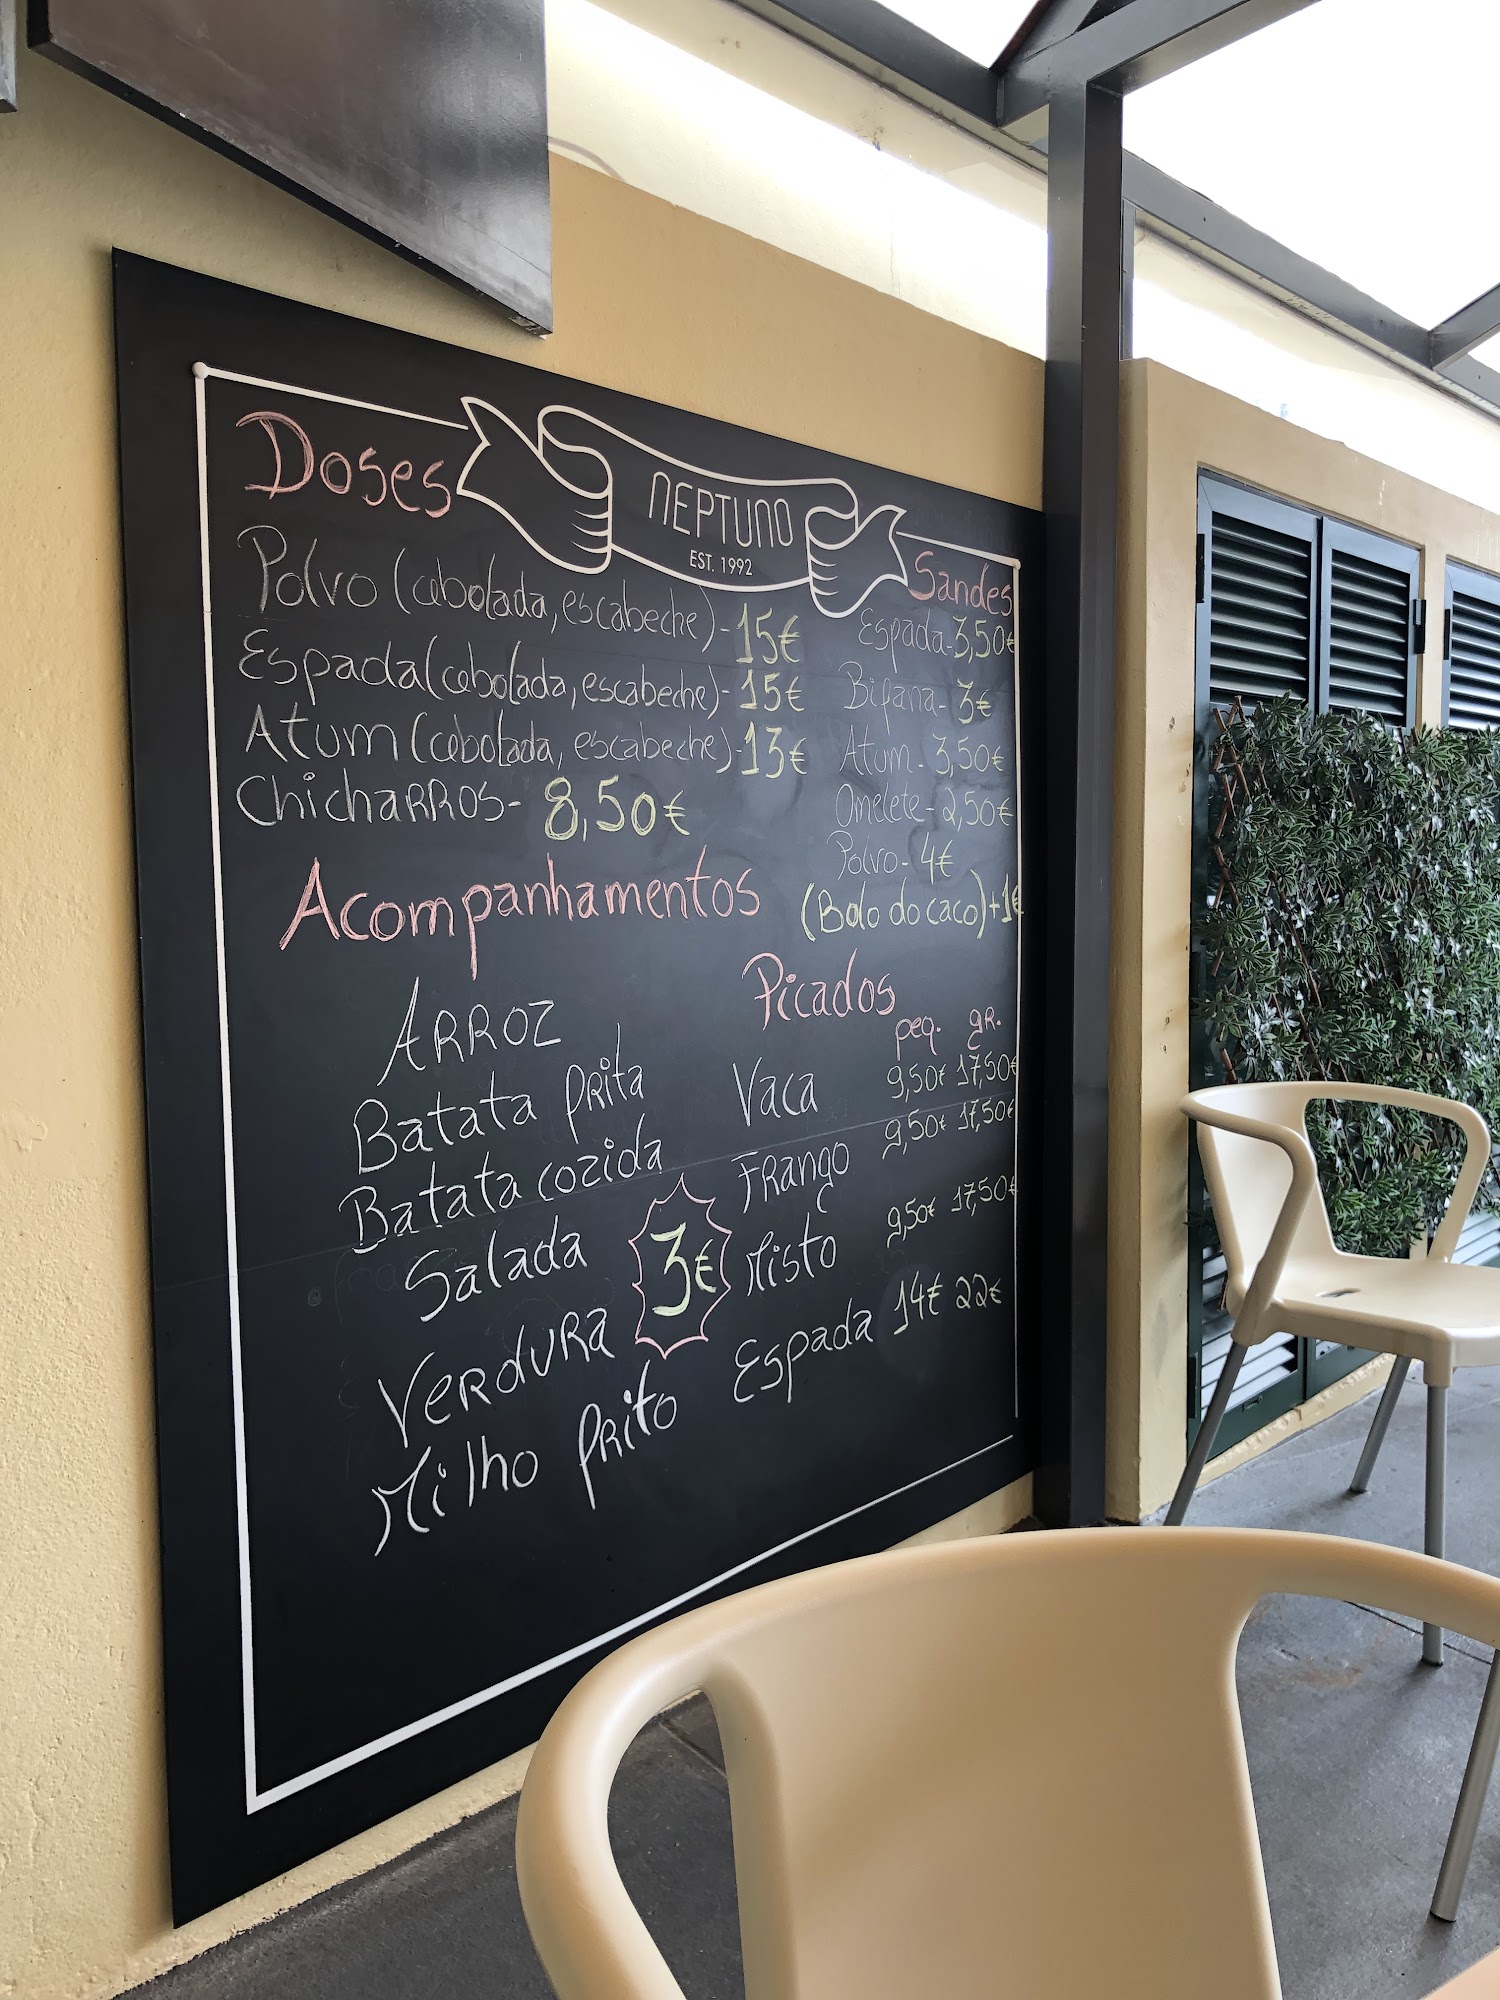 NEPTUNO
EST. 1992
Doses
Polvo (cebolada, escabeche) - 15€
Espada (cebolada, escabeche) - 15€
Atum (cebolada, escabeche) - 13€
Chicharros - 8,50€
Acompanhamentos
Arroz
Batata frita
Batata cozida
Salada
Verdura
Milho frito
3€
Sandes
Espada - 3,50€
Bifana - 3€
Atum - 3,50€
Omelete - 2,50€
Polvo - 4€
(Bolo do caco) +1€
Picados
peq. gr.
Vaca 9,50€ 17,50€
Frango 9,50€ 17,50€
Misto 9,50€ 17,50€
Espada 14€ 22€